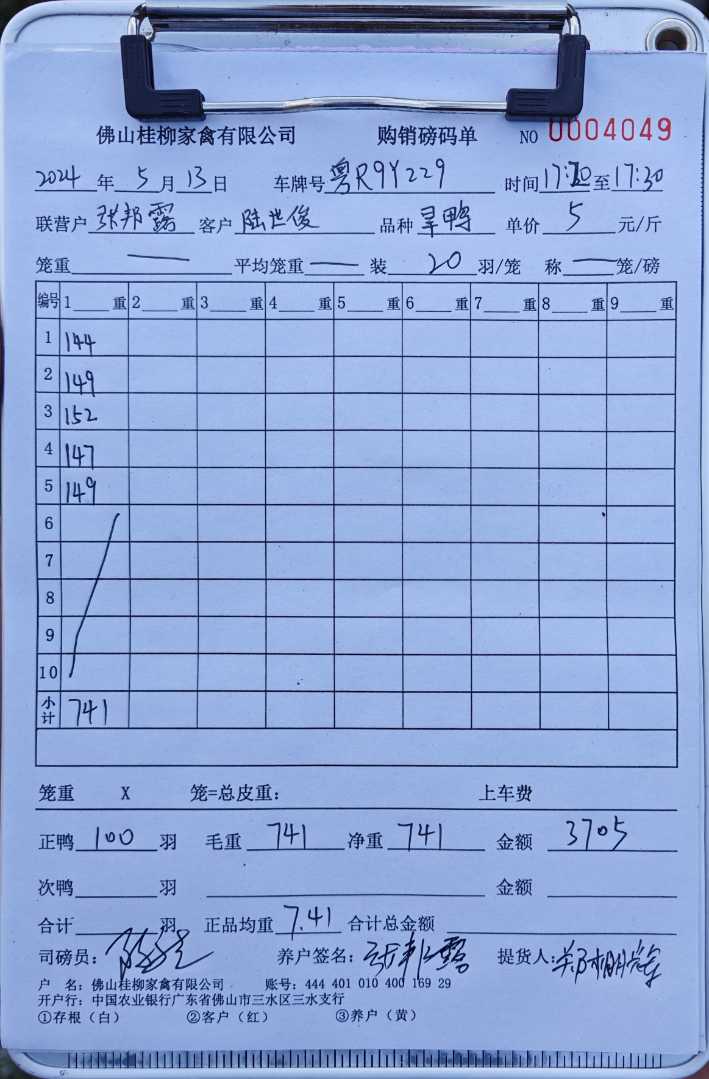 佛山桂柳家禽有限公司 购销磅码单 NO 0004049
2024年 5月 13日 车牌号 粤R9Y229 时间 17:20至17:30
联营户 张邦露 客户 陆世俊 品种 旱鸭 单价 5 元/斤
笼重 — 平均笼重 — 装 20 羽/笼 称 — 笼/磅
编号 1 重 2 重 3 重 4 重 5 重 6 重 7 重 8 重 9 重
1 144
2 149
3 152
4 147
5 149
6
7
8
9
10
小计 741
笼重 X 笼=总皮重: 上车费
正鸭 100 羽 毛重 741 净重 741 金额 3705
次鸭 羽 金额
合计 羽 正品均重 7.41 合计总金额
司磅员: 养户签名: 张邦露 提货人:
户 名: 佛山桂柳家禽有限公司 账号: 444 401 010 400 169 29
开户行: 中国农业银行广东省佛山市三水区三水支行
①存根（白） ②客户（红） ③养户（黄）